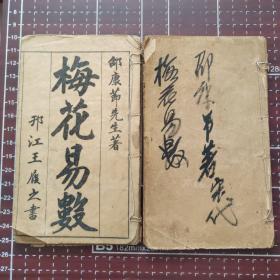 邵康節先生著
梅花易數
邗江王之書
邵康节著宋代
梅花易數
B5